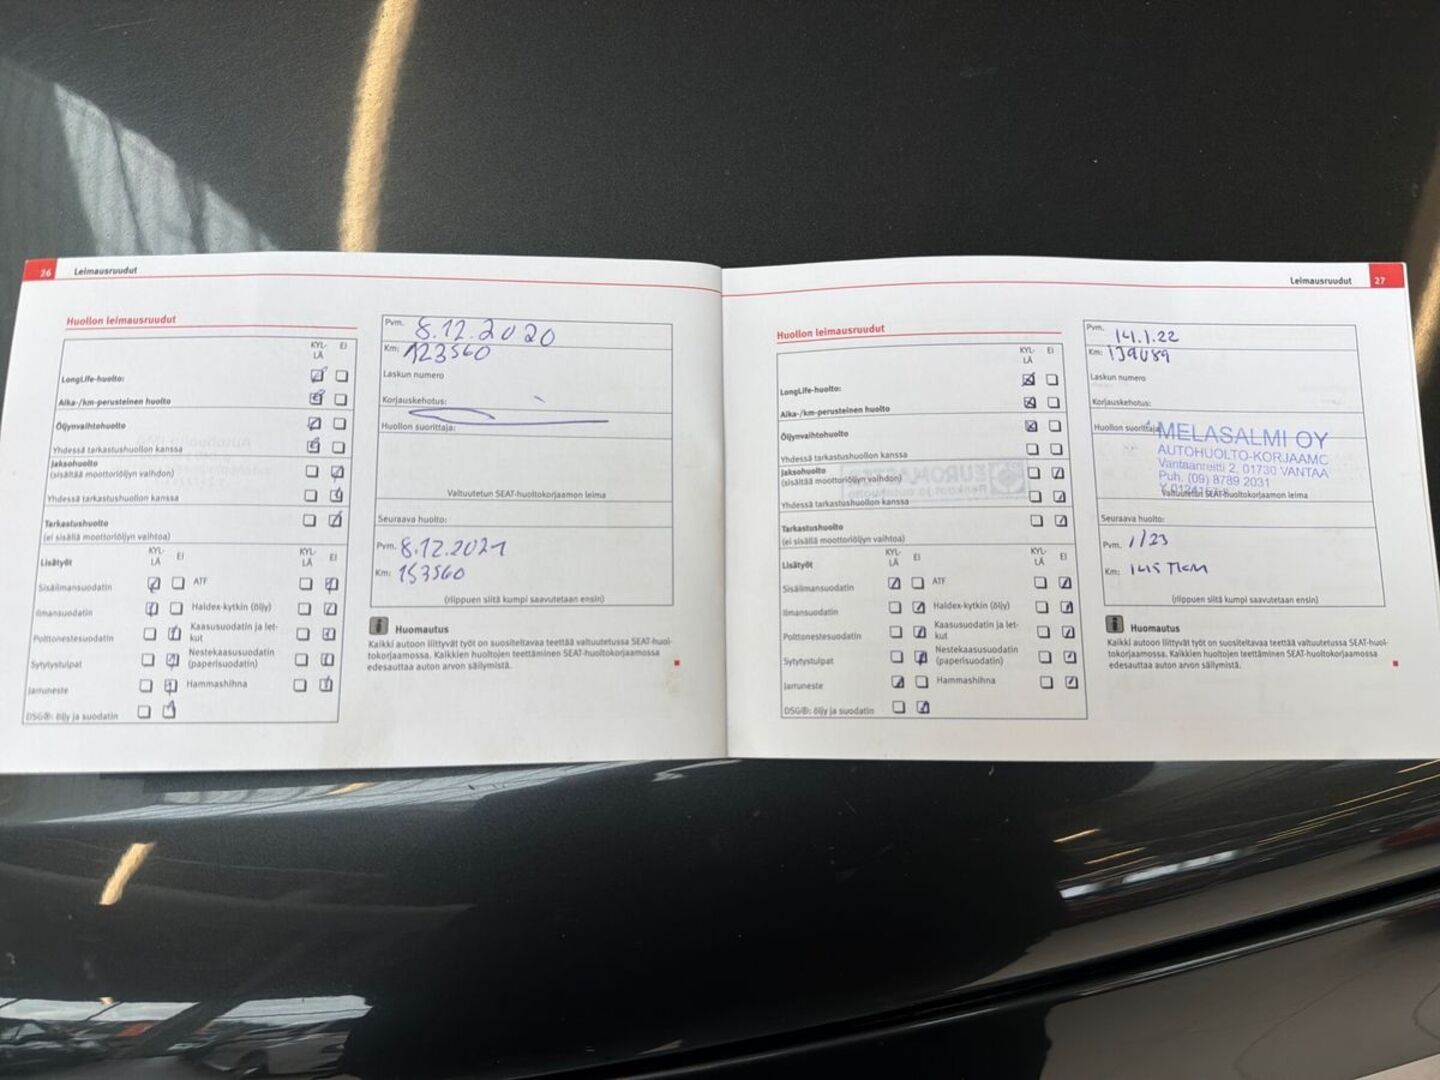 26 Leimausruudut
Huollon leimausruudut
KYL-
LÄ
EI
LongLife-huolto:
Aika-/km-perusteinen huolto
Öljynvaihtohuolto
Yhdessä tarkastushuollon kanssa
Jaksohuolto
(sisältää moottoriöljyn vaihdon)
Yhdessä tarkastushuollon kanssa
Tarkastushuolto
(ei sisällä moottoriöljyn vaihtoa)
Lisätyöt
KYL-
LÄ
EI
KYL-
LÄ
EI
Sisäilmansuodatin
ATF
Ilmansuodatin
Haldex-kytkin (öljy)
Polttonestesuodatin
Kaasusuodatin ja let-
kut
Sytytystulpat
Nestekaasusuodatin
(paperisuodatin)
Jarruneste
Hammashihna
DSG®: öljy ja suodatin
Pvm. 8.12.2020
Km: 123560
Laskun numero
Korjauskehotus:
Huollon suorittaja:
Valtuutetun SEAT-huoltokorjaamon leima
Seuraava huolto:
Pvm. 8.12.2021
Km: 153560
(riippuen siitä kumpi saavutetaan ensin)
Huomautus
Kaikki autoon liittyvät työt on suositeltavaa teettää valtuutetussa SEAT-huol-
tokorjaamossa. Kaikkien huoltojen teettäminen SEAT-huoltokorjaamossa
edesauttaa auton arvon säilymistä.
Leimausruudut 27
Huollon leimausruudut
KYL-
LÄ
EI
LongLife-huolto:
Aika-/km-perusteinen huolto
Öljynvaihtohuolto
Yhdessä tarkastushuollon kanssa
Jaksohuolto
(sisältää moottoriöljyn vaihdon)
Yhdessä tarkastushuollon kanssa
Tarkastushuolto
(ei sisällä moottoriöljyn vaihtoa)
Lisätyöt
KYL-
LÄ
EI
KYL-
LÄ
EI
Sisäilmansuodatin
ATF
Ilmansuodatin
Haldex-kytkin (öljy)
Polttonestesuodatin
Kaasusuodatin ja let-
kut
Sytytystulpat
Nestekaasusuodatin
(paperisuodatin)
Jarruneste
Hammashihna
DSG®: öljy ja suodatin
Pvm. 14.1.22
Km:
Laskun numero
Korjauskehotus:
Huollon suorittaja
MELASALMI OY
AUTOHUOLTO-KORJAAMO
Vantaanreitti 2, 01730 VANTAA
Puh. (09) 8789 2031
Valtuutetun SEAT-huoltokorjaamon leima
Seuraava huolto:
Pvm. 1/23
Km: 145 TKM
(riippuen siitä kumpi saavutetaan ensin)
Huomautus
Kaikki autoon liittyvät työt on suositeltavaa teettää valtuutetussa SEAT-huol-
tokorjaamossa. Kaikkien huoltojen teettäminen SEAT-huoltokorjaamossa
edesauttaa auton arvon säilymistä.